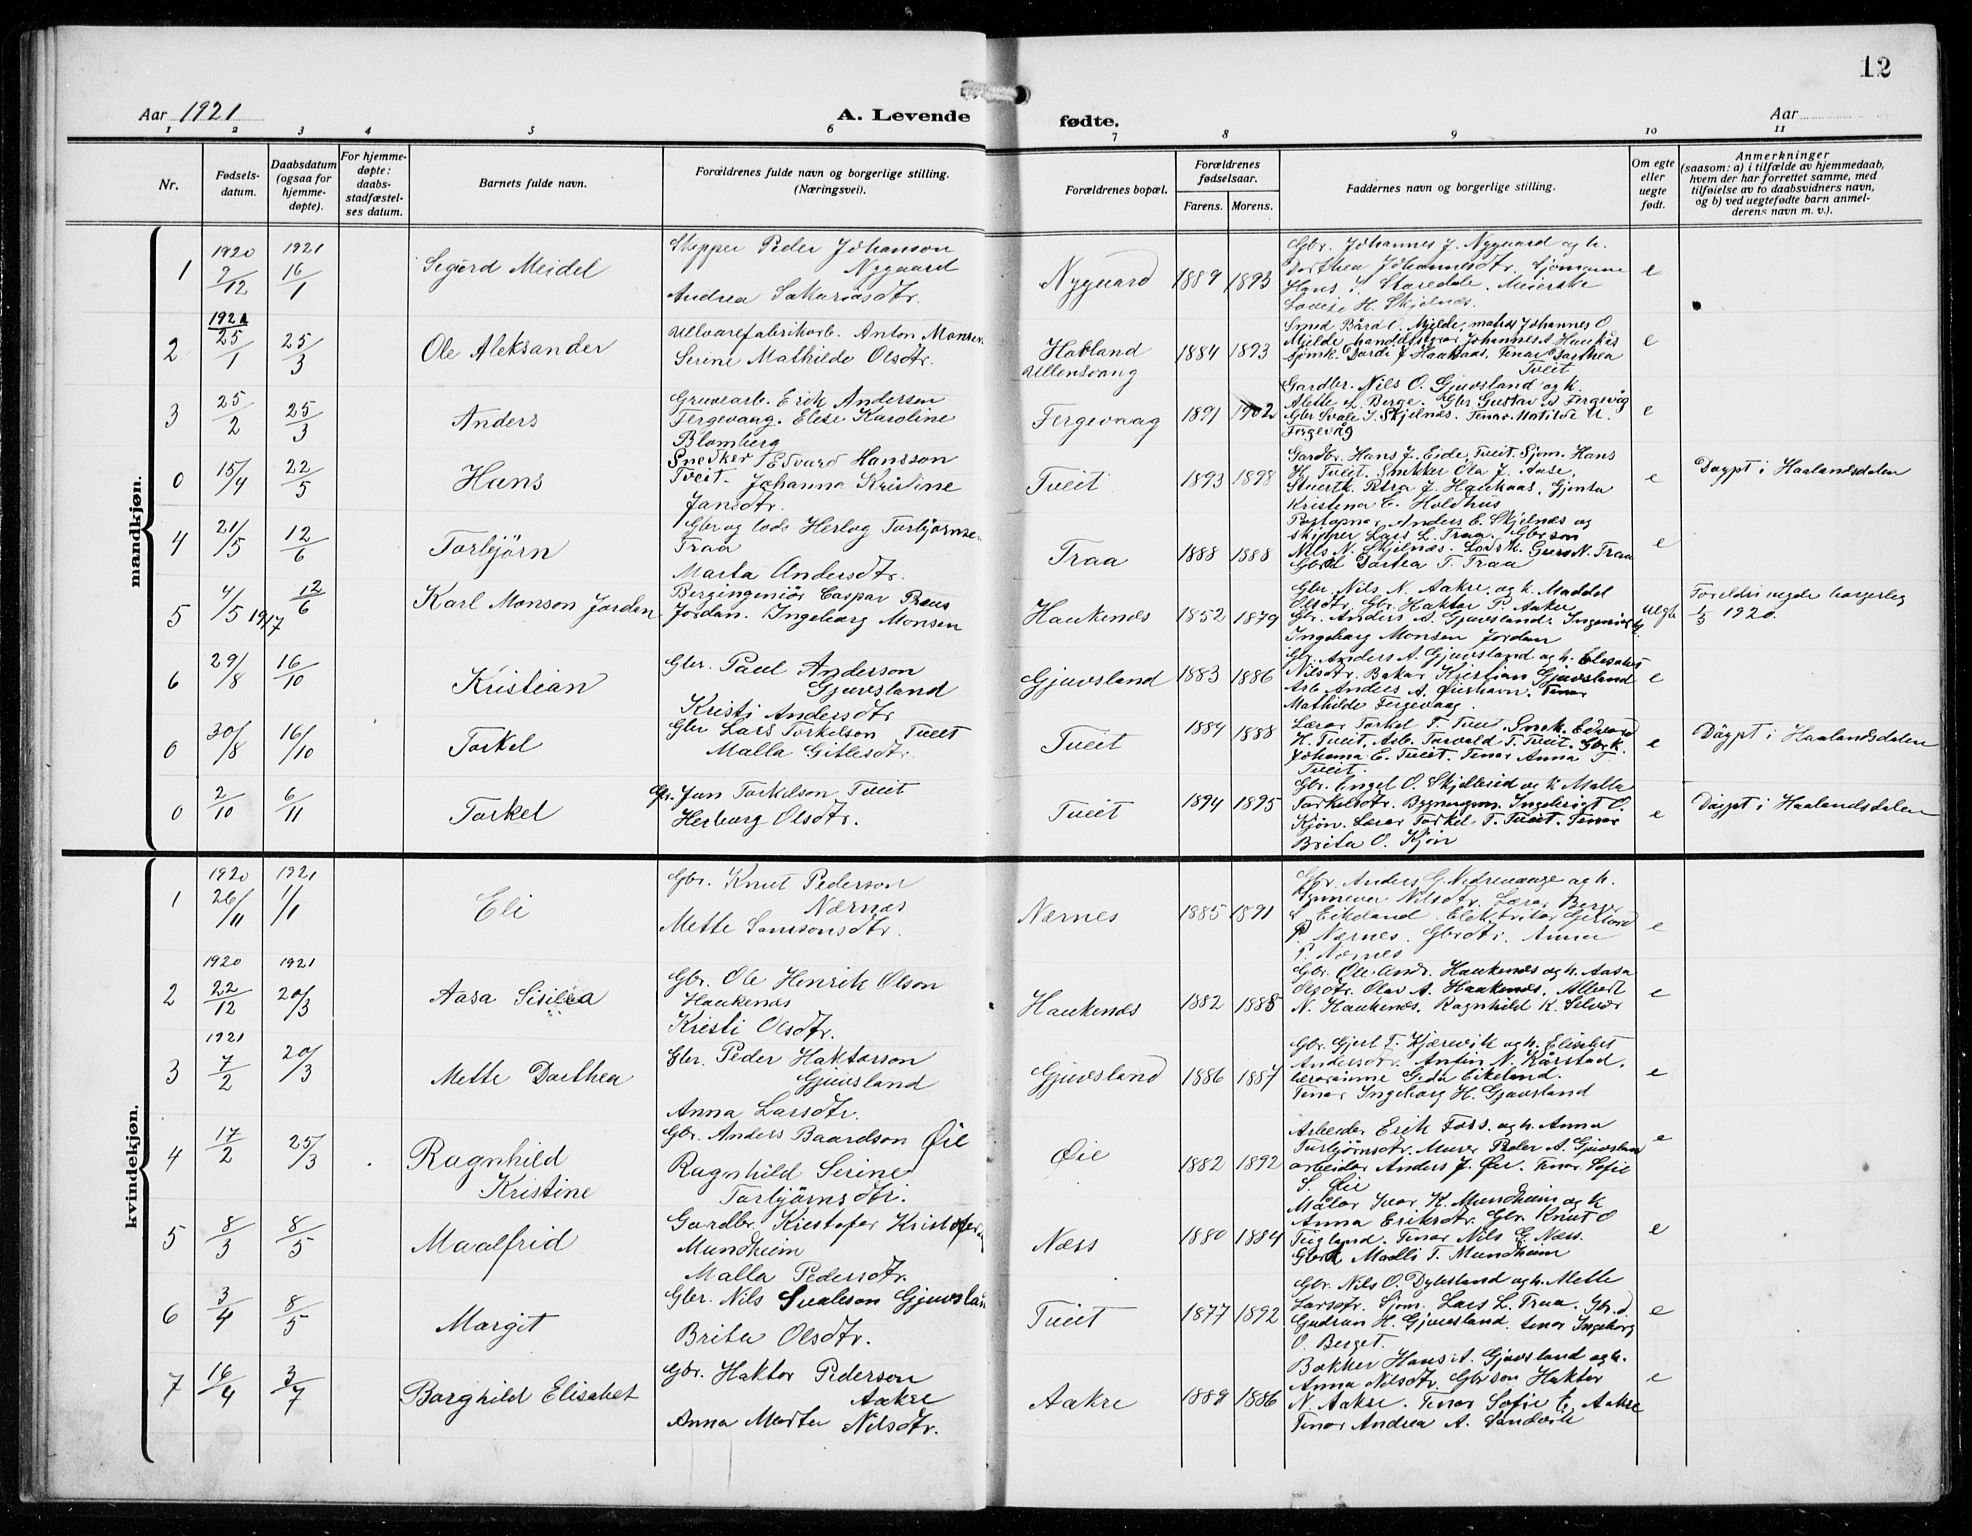 12
Aar 1921
A. Levende fødte.
Aar
1 2 3 4 5 6 7 8 9 10 11
Nr.
Fødsels-
datum.
Daabsdatum
(ogsaa for
hjemme-
døpte).
For hjemme-
døpte:
daabs-
stadfæstel-
ses datum.
Barnets fulde navn.
Forældrenes fulde navn og borgerlige stilling.
(Næringsvei).
Forældrenes bopæl.
Forældrenes
fødselsaar.
Farens. Morens.
Faddernes navn og borgerlige stilling.
Om egte
eller
uegte
født.
Anmerkninger
(saasom: a) i tilfælde av hjemmedaab,
hvem der har forrettet samme, med
tilføielse av to daabsvidners navn,
og b) ved uegtefødte barn anmel-
derens navn m. v.).
mandkjøn.
1
1920
7/12
1921
16/1
Sigurd Meidel
Skipper Peder Johanson
Nygaard
Andrea Sakariasdtr.
Nygaard
1889 1893
Gbr. Johannes J. Nygaard og h.
Dorthea Johannesdtr. Sjømanne
Hans Meierske
Lovise H. Skjelnæs.
e
2
1921
25/1
25/3
Ole Aleksander
Ullvarefabrikarb. Anton Monsen
Serine Mathilde Olsdtr.
Haaland
Ullensvang
1884 1893
Smed Bård Mjelde, matros Johannes O
Mjelde
Tveit
e
3
25/2
25/3
Anders
Gruvearb. Erik Anderson
Fergevaag. Elese Karoline
Blomberg
Fergevaag
1891 1902
Gardbr. Nils O. Gjuvsland og k.
Alette Berge. Gbr Gustav Fergevåg
Gbr Svale J. Skjelnæs. Tenar Matilde
Fergevåg
e
0
15/4
22/5
Hans
Snedker Edvard Hansson
Tveit. Johanna Kristine
Jansdtr.
Tveit
1893 1898
Gardbr. Hans J. Eide, Tveit. Sjøm. Hans
H. Tveit. Snikker Ola J. Aase.
Petra J. Haukaas, Gjenta
Kristena E. Holdhus
e
Døypt i Haalandsdalen
4
21/5
12/6
Torbjørn
Gbr og lods Herlog Torbjørnsen
Traa
Marta Andersdtr.
Traa
1888 1888
Postopnar Anders E. Skjelnæs og
skipper Lars L. Traa. Gbrson
Nils N. Skjelnæs. Lodsk. Guro N. Traa
Gbrd Dorthea T. Traa
e
5
4/5 1917
12/6
Karl Monson Jordan
Bergingeniør Caspar Præus
Jordan. Ingeborg Monsen
Haukenæs
1852 1879
Gbr. Nils N. Aakre og k. Maddel
Olsdtr. Gbr. Haktor P. Aakre
Gbr. Anders A. Gjuvsland
Ingeborg Monsen Jordan
uegte
Foreldri vigde borgerleg
1/5 1920.
6
29/8
16/10
Kristian
Gbr. Paul Anderson
Gjuvsland
Kristi Andersdtr
Gjuvsland
1883 1886
Gbr. Anders A. Gjuvsland og h. Elisabet
Nilsdtr. Bakar Kristian Gjuvsland
Arb. Anders A. Øierhavn. Tenar
Mathilde Fergevaag.
e
0
30/8
16/10
Torkel
Gbr Lars Torkelson Tveit
Malla Gitlesdtr.
Tveit
1884 1888
Lærar Torkel T. Tveit. Smk. Edvard
H. Tveit. Arb. Torvald T. Tveit. Gbrk.
Johanna E. Tveit. Tenar Anna T
Tveit.
e
Døypt i Haalandsdalen
0
2/10
6/11
Torkel
Gbr. Jan Torkelson Tveit
Herborg Olsdtr.
Tveit
1894 1895
Gbr. Engel O. Skjelbreid og k Malla
Torkelsdtr. Bygningsm. Ingebrigt O.
Kjøn. Lærar Torkel T. Tveit. Tenar
Brita O. Kjøn
e
Døypt i Haalandsdalen
kvindekjøn.
1
1920
26/11
1921
1/1
Eli
Gbr. Knut Pederson
Nærnæs
Mette Samsonsdtr.
Nærnes
1885 1891
Gbr. Anders G. Nedrevange og h.
Synnever Nilsdtr. Lærar Berge
Eikeland. Elektriker
P. Nærnes. Gbrdtr. Anna
P. Nærnes
e
2
1920
22/12
1921
20/3
Aasa Sisilea
Gbr. Ole Henrik Olson
Haukenæs
Kristi Olsdtr.
Haukenæs
1882 1885
Gbr. Ole Andr. Haukenæs og h. Aasa
Olsdtr. Olav A. Haukenæs, Albert
N. Haukenæs. Ragnhild K. Selvær
e
3
1921
7/2
20/3
Mette Dorthea
Gbr. Peder Haktorson
Gjuvsland
Anna Larsdtr.
Gjuvsland
1886 1887
Gbr. Gjert T. Kjærevik og h. Elisabet
Andersdtr. Anfin N. Kårstad.
Lærarinne Gyda Eikeland.
Tenar Ingeborg H. Gjuvsland
e
4
17/2
25/3
Ragnhild
Kristine
Gbr. Anders Baardson Øie
Ragnhild Serine
Torbjørnsdtr.
Øie
1882 1892
Arbeider Erik Foss og h. Anna
Torbjørnsdtr. Murer Peder A. Gjuvsland
arbeider Anders J. Øie. Tenar Sofie
S. Øie
e
5
8/3
8/5
Maalfrid
Gardbr. Kristofer Kristoferson
Mundheim
Malla Pedersdtr.
Næss
1880 1884
Målar Ivar K. Mundheim og k
Anna Eriksdtr. Gbr. Knut O
Teigland. Tenar Nils G. Næss.
Gbrk Madli T. Mundheim
e
6
3/4
8/5
Margit
Gbr. Nils Svaleson Gjuvsland
Brita Olsdtr.
Tveit
1877 1892
Gbr. Nils O. Dyvsland og h. Mette
Larsdtr. Sjøm. Lars L. Traa. Gbr.d.
Gudrun H. Gjuvsland. tenar Ingeborg
O. Berget.
e
7
16/4
3/7
Borghild Elisabet
Gbr. Haktor Pederson
Aakre
Anna Marta Nilsdtr.
Aakre
1889 1886
Bakker Hans A. Gjuvsland og h.
Anna Nilsdtr. Gbrson Haktor
N. Aakre. Tenar Sofie E. Aakre
Tenar Andrea A. Sandvik
e